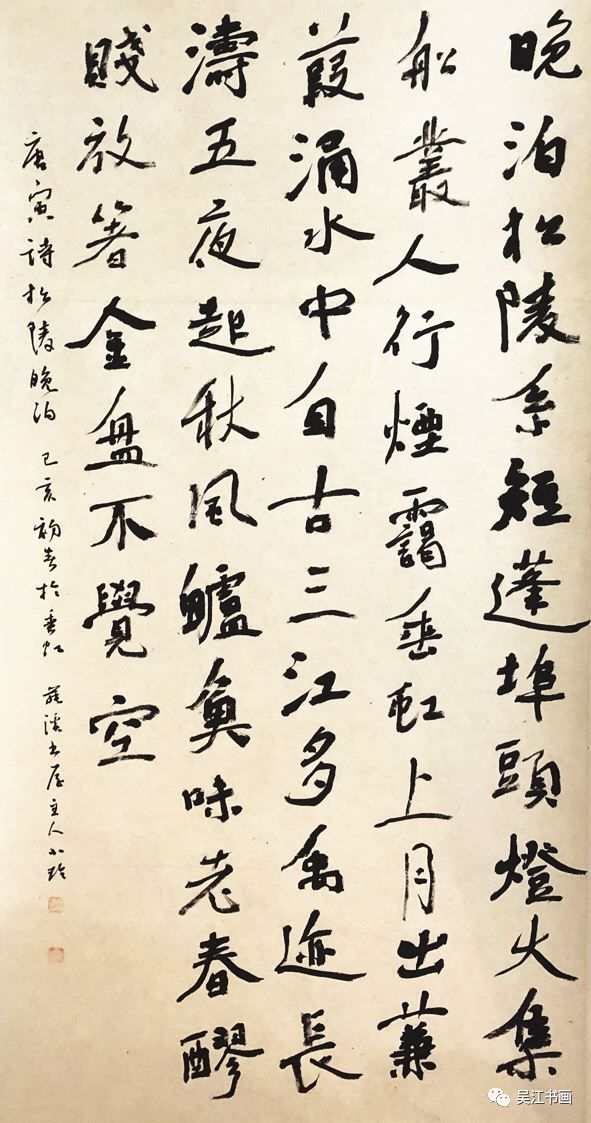 晚泊松陵系短蓬埠頭燈火集
船叢人行煙靄垂虹上月出蒹
葭涌水中自古三江多禹迹長
濤五夜起秋風鱸魚味老春醪
賤放箸金盤不覺空
唐寅詩松陵晚泊 己亥初春於垂虹 書屋主人小
吴江书画